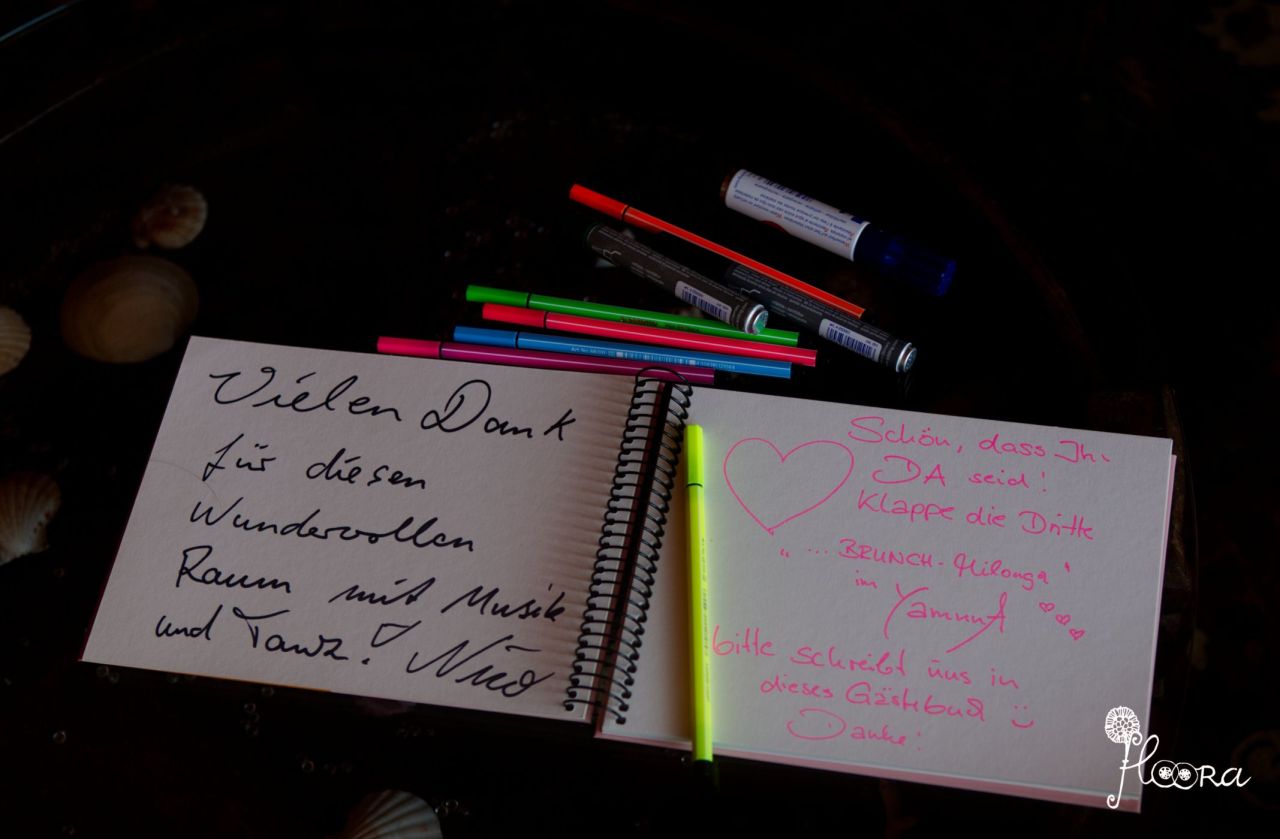 Vielen Dank
für diesen
Wundervollen
Raum mit Musik
und Tanz! Nico
Schön, dass Ihr
DA seid!
Klappe die Dritte
„ ... BRUNCH-Milonga'
im YamunA
bitte schreibt uns in
dieses Gästebuch
Danke!
floora